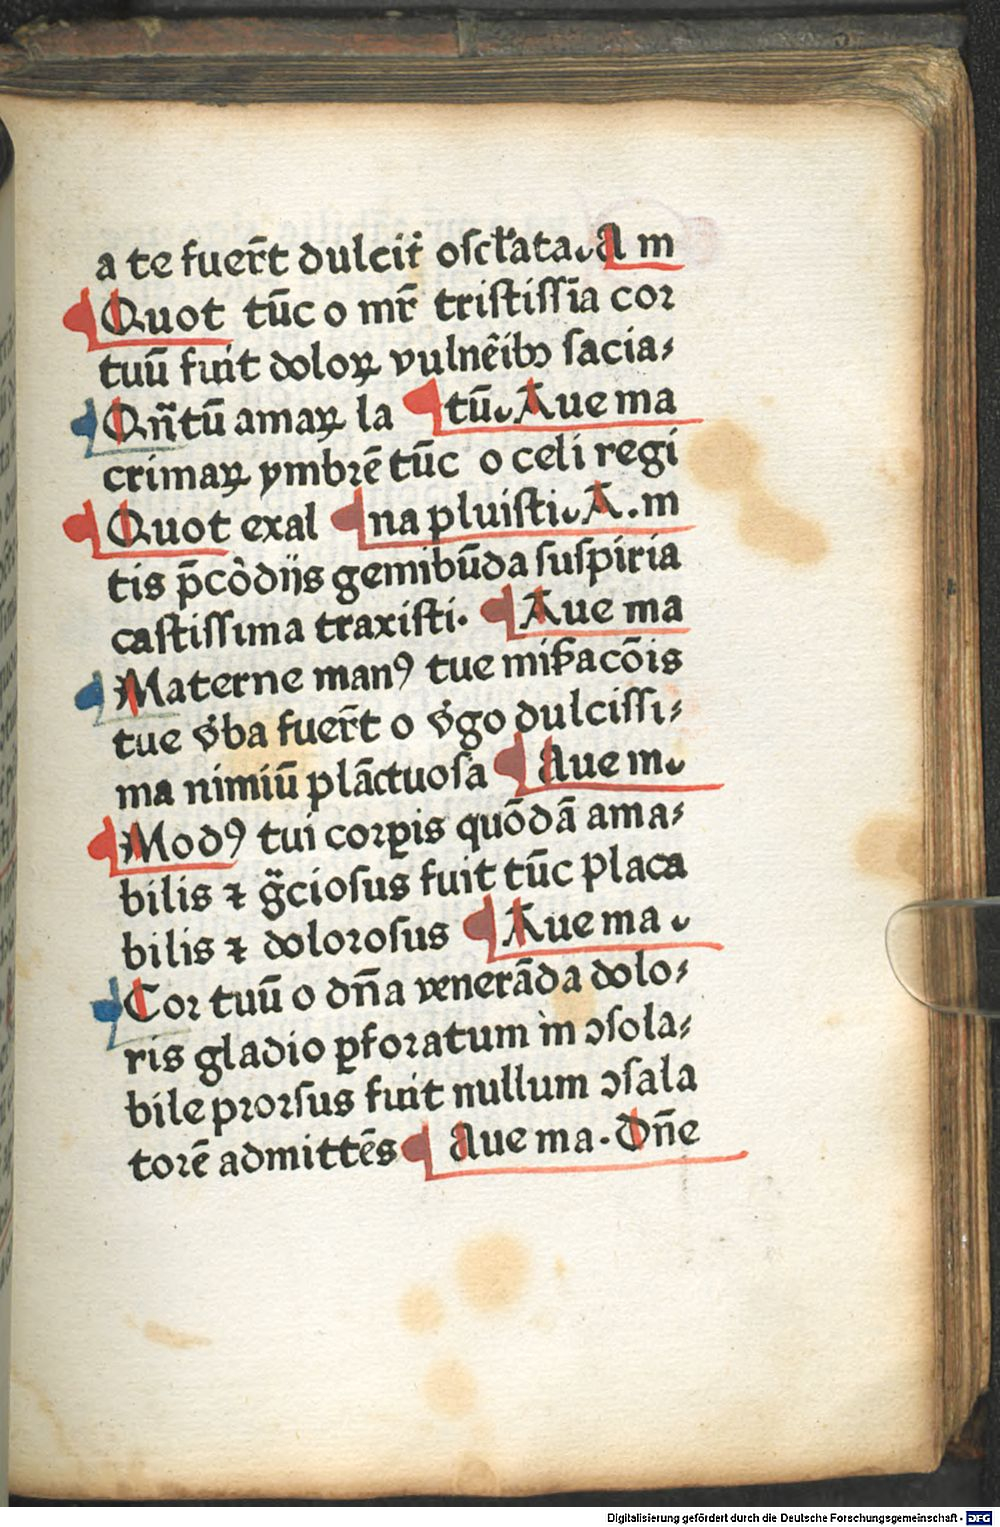 a te fuer̄t dulcit̉ oscl̄ata. A m
Quot tūc o mr̄ tristissīa cor
tuū fuit doloꝝ vulnēibꝫ sacia⸗
Qn̄tū amaꝝ la tū. Aue ma
crimaꝝ ymbrē tūc o celi regi
Quot exal na pluisti. A. m
tis p̄còdijs gemibūda suspiria
castissima traxisti. Aue ma
Materne manꝰ tue mīẜacōis
tue v̉ba fuer̄t o v̉go dulcissi⸗
ma nimiū plāctuosa Aue m.
Modꝰ tui corꝑis quōdā ama⸗
bilis ⁊ gᷓciosus fuit tūc placa
bilis ⁊ dolorosus Aue ma.
Cor tuū o dn̄a venerāda dolo⸗
ris gladio ꝑforatum in ɔsola⸗
bile prorsus fuit nullum ɔsala
torē admittēs Aue ma. Dn̄e
Digitalisierung gefördert durch die Deutsche Forschungsgemeinschaft - DFG